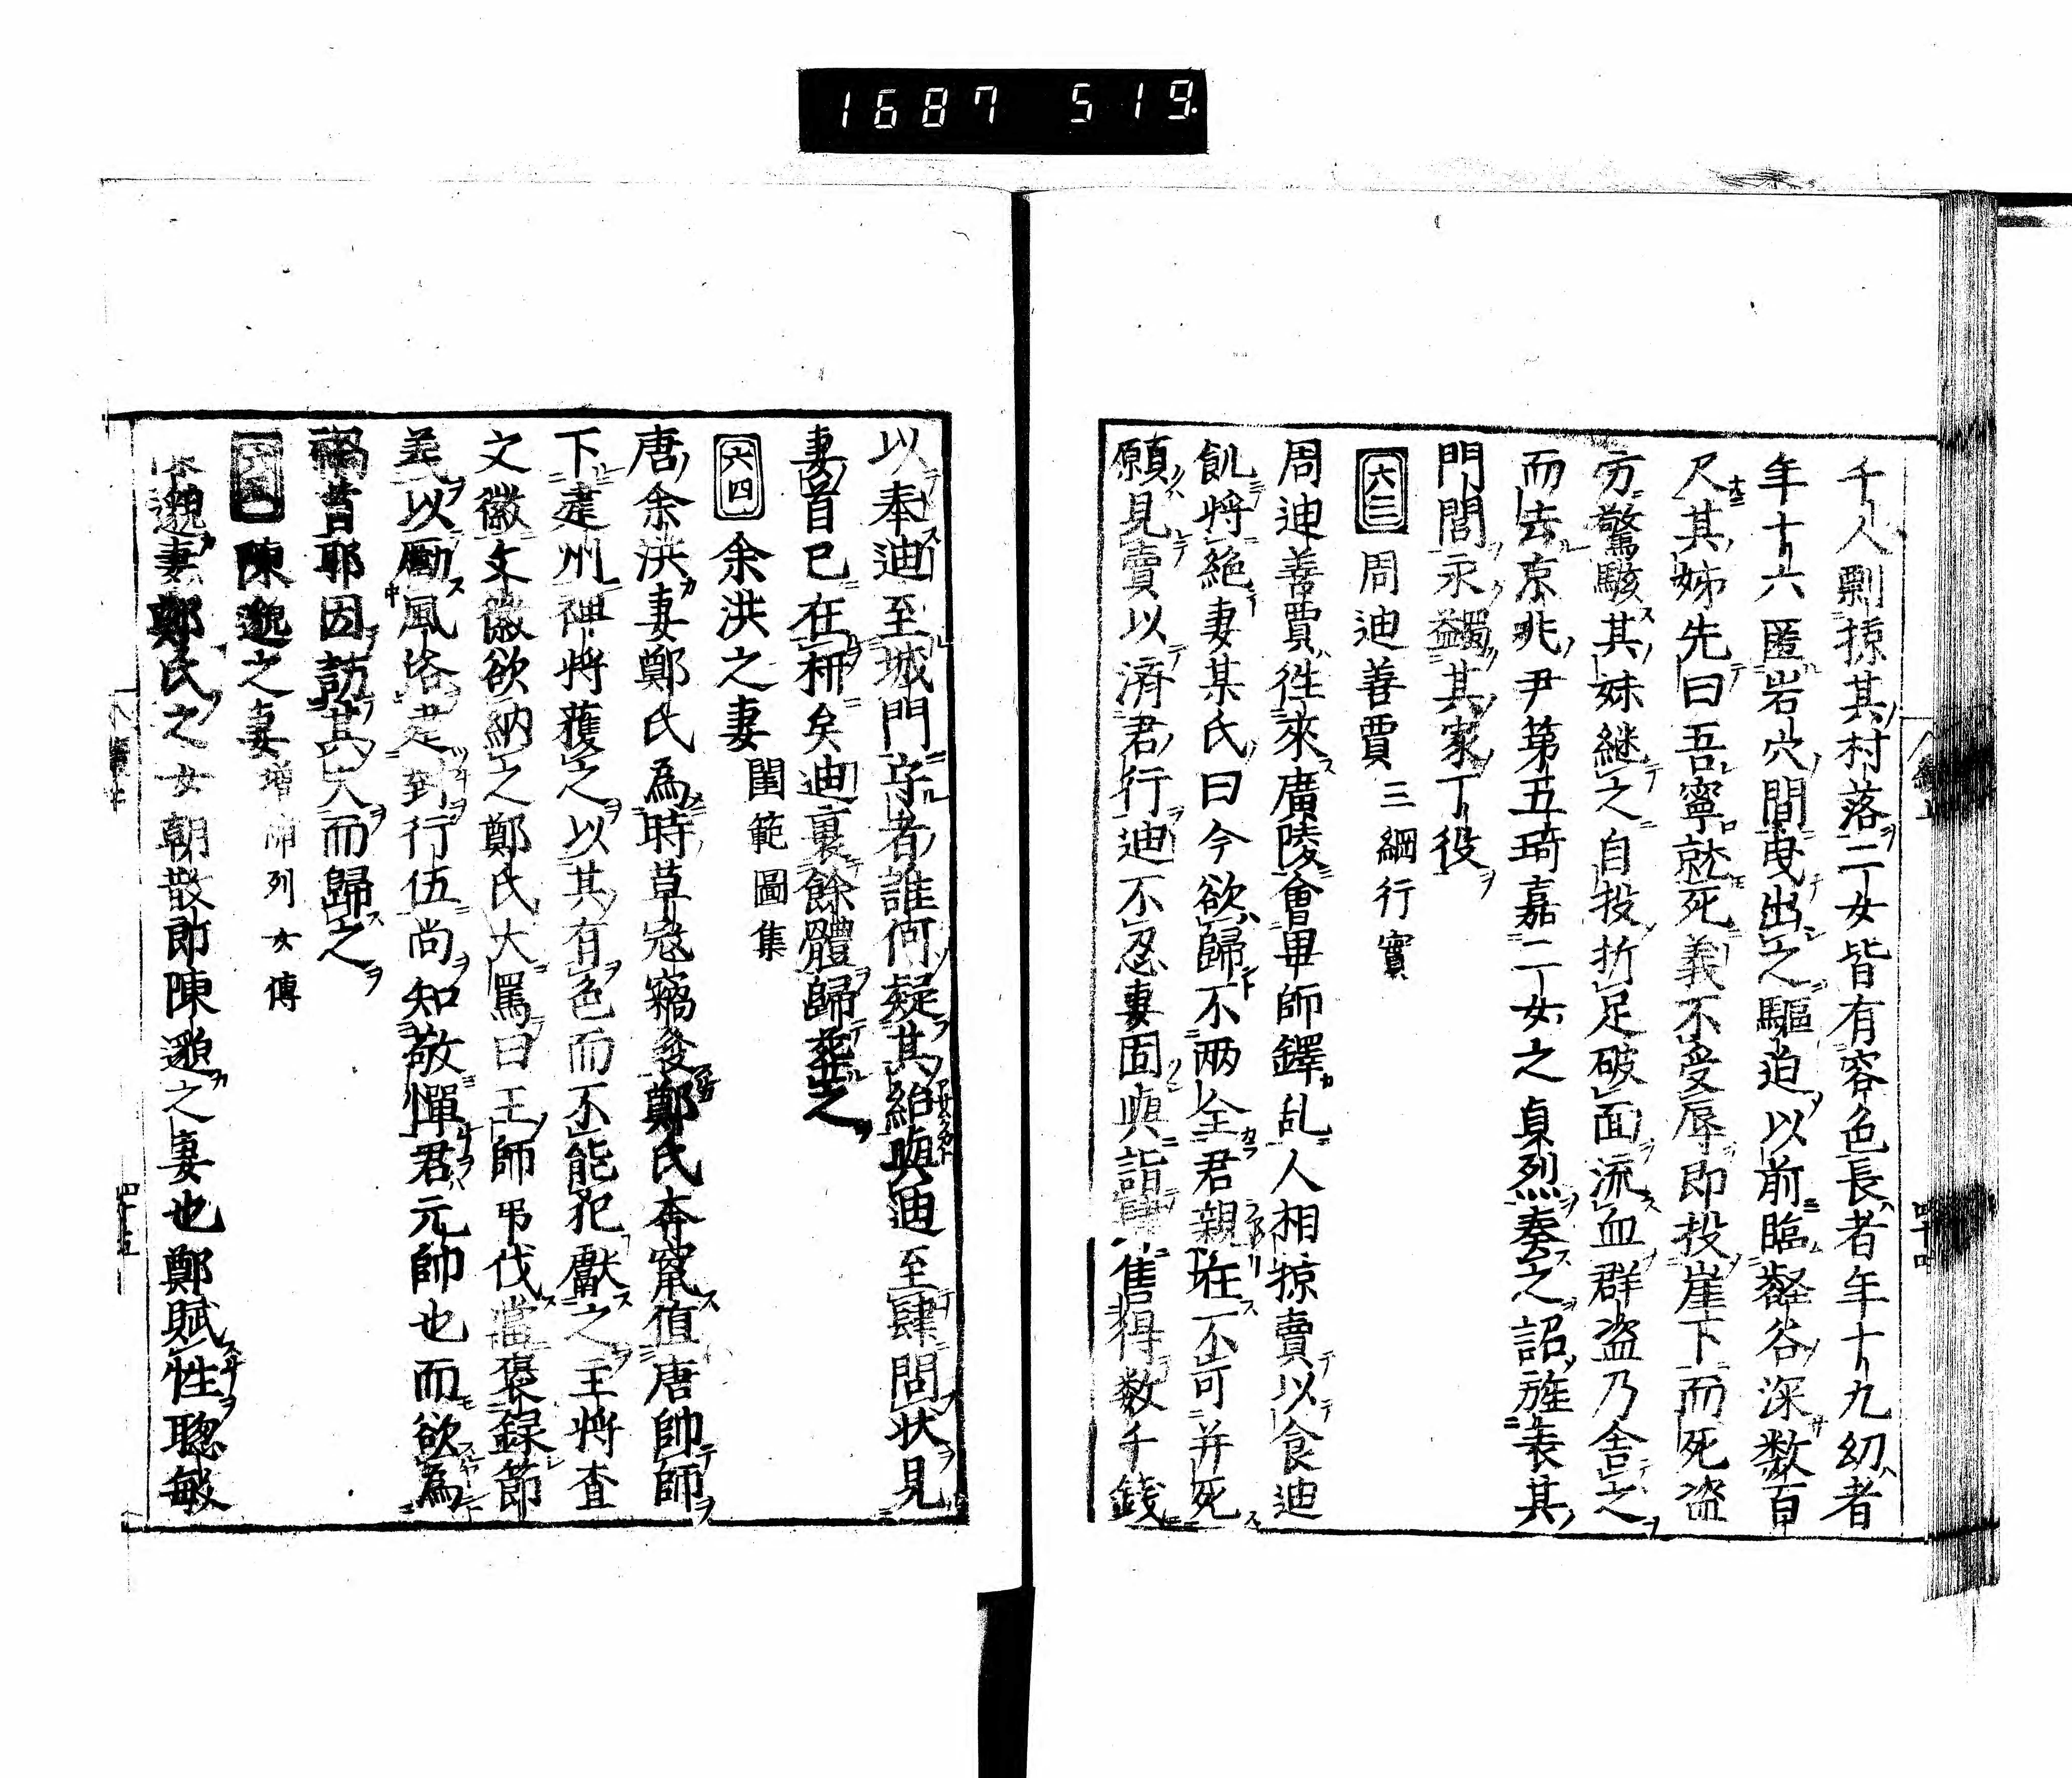 1687 519.
千人剽掠其村落二女皆有容色長者年十九幼者
年十六匿岩穴間曳出之驅迫以前臨壑谷深数百
尺其姊先曰吾寧就死義不受辱即投崖下而死盗
方驚駭其妹継之自投折足破面流血群盗乃舎之
而去京兆尹第五琦嘉二女之貞烈奏之詔旌表其
門閭永蠲其家丁役
六三 周迪善賈 三綱行實
周迪善賈徃來廣陵會畢師鐸乱人相掠賣以食迪
飢将絶妻某氏曰今欲歸不两全君親在不可并死
願見賣以済君行迪不忍妻固與詣肆售得数千錢
以奉迪至城門守者誰何疑其紿與迪至肆問状見
妻首已在枅矣迪裹餘體歸葬之
六四 余洪之妻 閨範圖集
唐余洪妻鄭氏為時草寇竊發鄭氏奔竄值唐帥師
下建州裨将獲之以其有色而不能犯献之王将査
文徽文徽欲納之鄭氏大罵曰王師弔伐當褒録節
義以勵風俗是到行伍尚知敬憚君元帥也而欲為
禍首耶因訪其夫而歸之
陳邈之妻 増補列女傳
陳邈妻鄭氏之女朝散郎陳邈之妻也鄭賦性聰敏
四十四
四十五